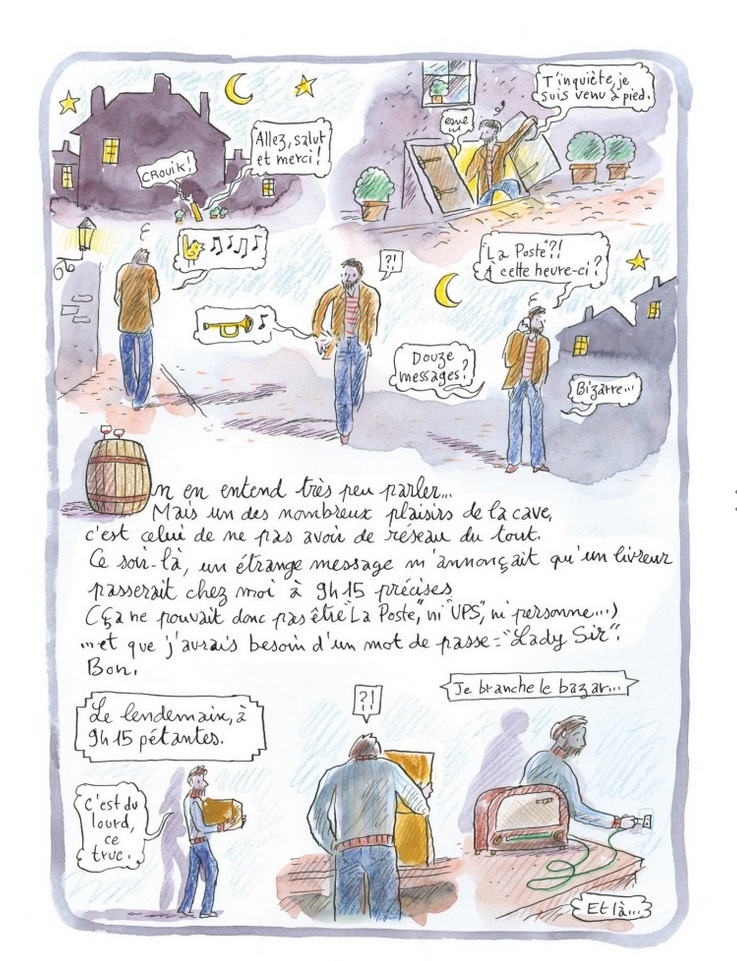 CROUIK!
Allez, salut
et merci!
T'inquiète, je
suis venu à pied.
?!
La Poste?!
À cette heure-ci?
Douze
messages?
Bizarre...
n en entend très peu parler...
Mais un des nombreux plaisirs de la cave,
c'est celui de ne pas avoir de réseau du tout.
Ce soir-là, un étrange message m'annonçait qu'un livreur
passerait chez moi à 9h15 précises
(Ça ne pouvait donc pas être "La Poste", ni "UPS", ni personne...)
...et que j'aurais besoin d'un mot de passe: "Lady Sir".
Bon.
Le lendemain, à
9h15 pétantes.
C'est du
lourd,
ce
truc.
?!
Je branche le bazar...
Et là...